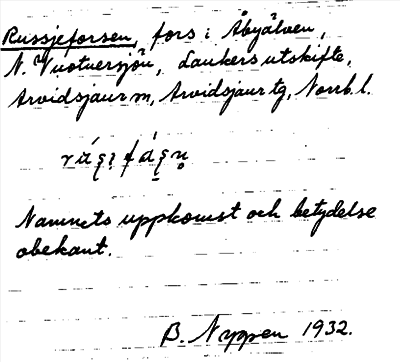 Russjeforsen, fors i Åbyälven,
N. Vuotnersjön, Laukers utskifte,
Arvidsjaur sn, Arvidsjaur tg, Norrb. l.
Namnets uppkomst och betydelse
obekant.
B. Nyssen 1932.